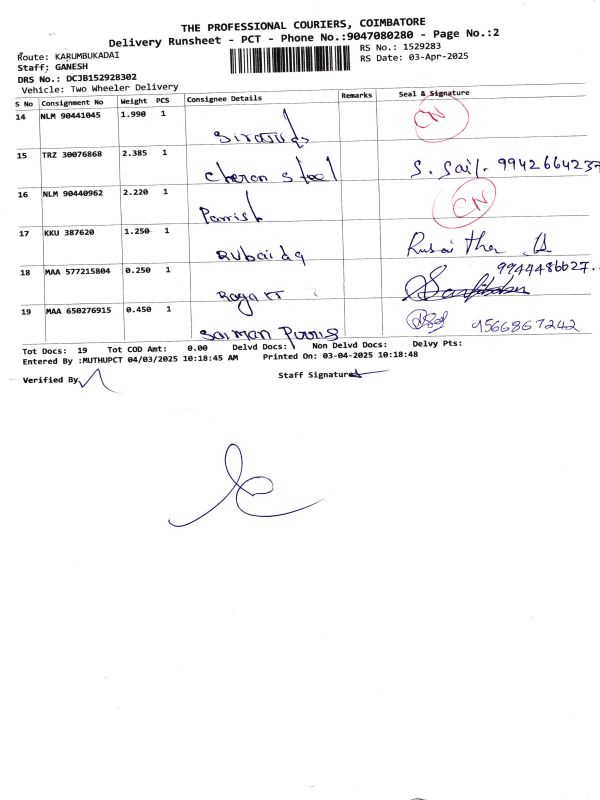 THE PROFESSIONAL COURIERS, COIMBATORE
Delivery Runsheet - PCT - Phone No.:9047080280 - Page No.:2
Route: KARUMBUKADAI
RS No.: 1529283
Staff: GANESH
RS Date: 03-Apr-2025
DRS No.: DCJB152928302
Vehicle: Two Wheeler Delivery
S No Consignment No Weight PCS Consignee Details Remarks Seal & Signature
14 NLM 90441045 1.990 1 CN
15 TRZ 30076868 2.385 1 Cheran Steel S. Sail. 9942664237
16 NLM 90440962 2.220 1 Parrish CN
17 KKU 387620 1.250 1 Rubaida
18 MAA 577215804 0.250 1 9944486627.
19 MAA 650276915 0.450 1 Saiman 9566867242
Tot Docs: 19 Tot COD Amt: 0.00 Delvd Docs: Non Delvd Docs: Delvy Pts:
Entered By :MUTHUPCT 04/03/2025 10:18:45 AM Printed On: 03-04-2025 10:18:48
Verified By
Staff Signature